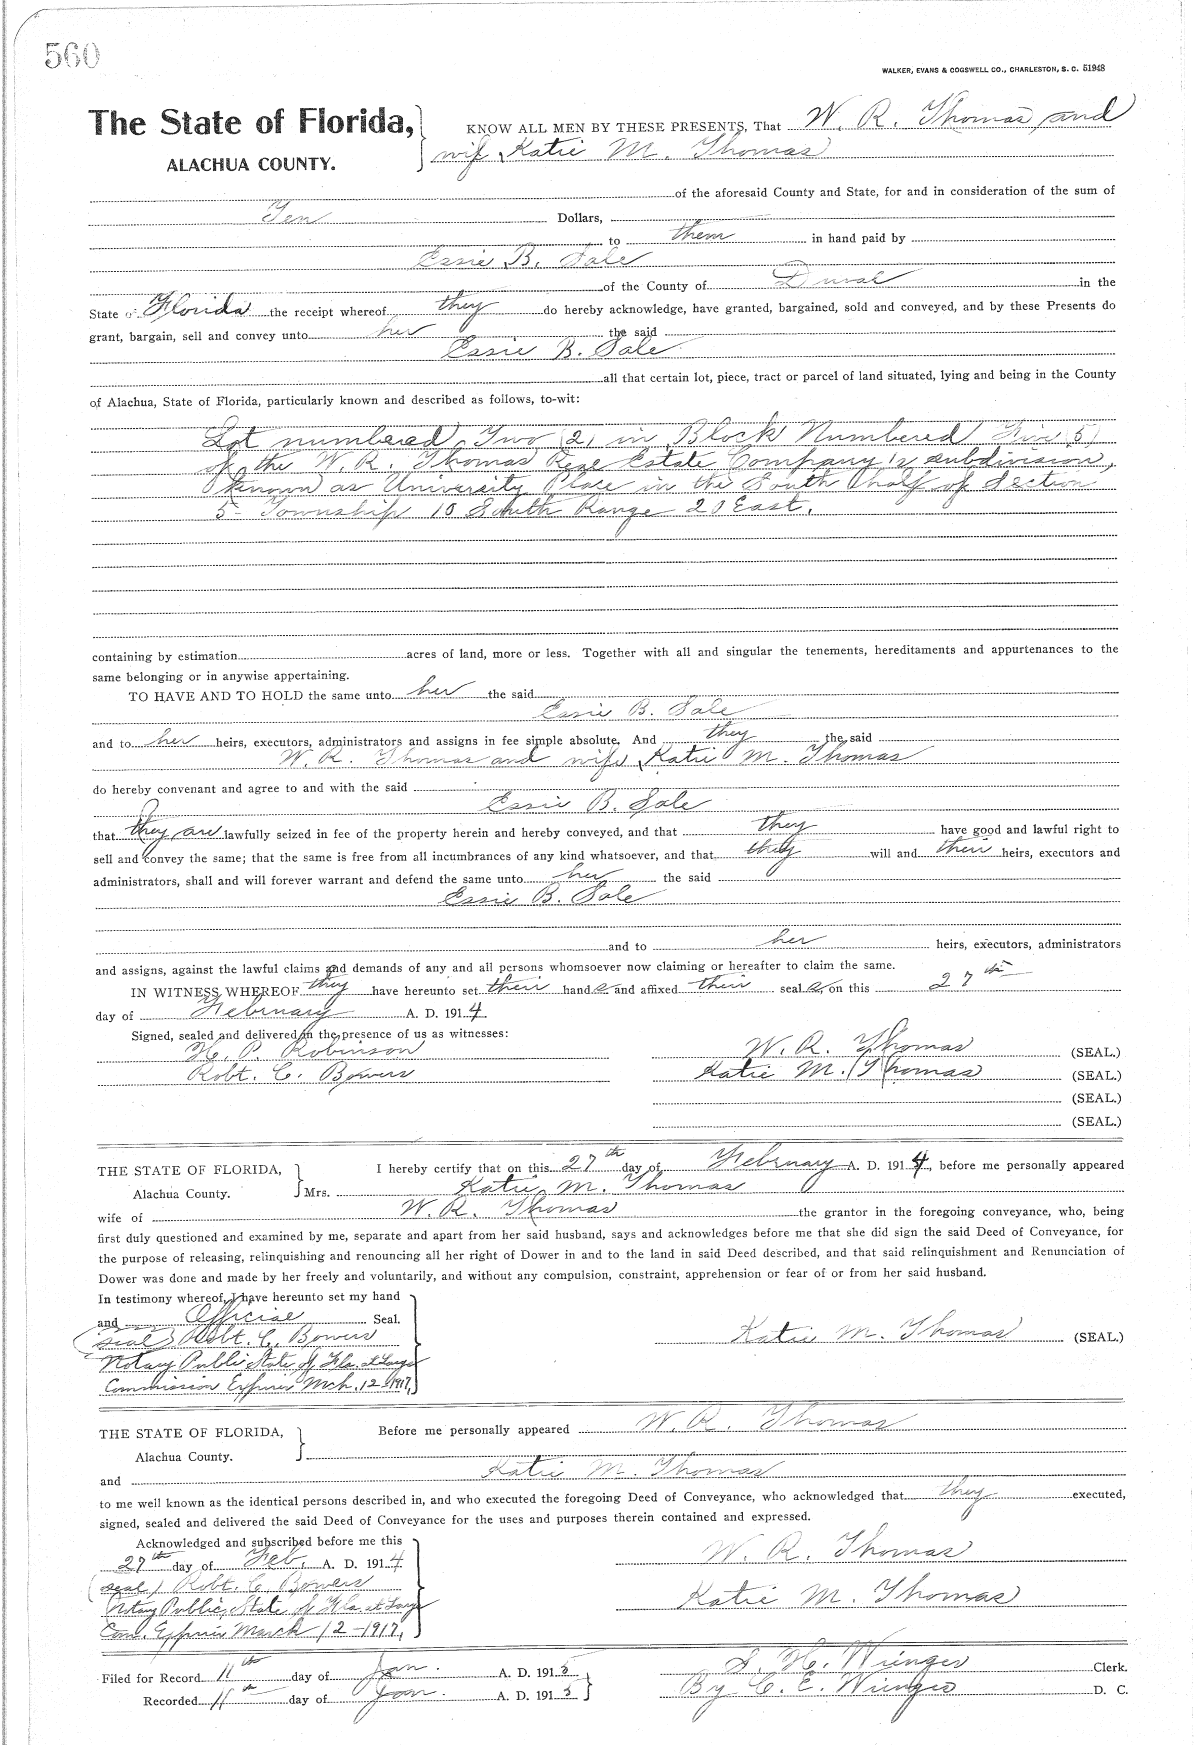 560
WALKER, EVANS & COGSWELL CO., CHARLESTON, S. C. 51948
The State of Florida, KNOW ALL MEN BY THESE PRESENTS, That W. R. Thomas and
ALACHUA COUNTY. wife Katie M. Thomas
of the aforesaid County and State, for and in consideration of the sum of
Ten Dollars,
to them in hand paid by
Essie B. Sale
of the County of Duval in the
State of Florida the receipt whereof they do hereby acknowledge, have granted, bargained, sold and conveyed, and by these Presents do
grant, bargain, sell and convey unto her the said
Essie B. Sale
all that certain lot, piece, tract or parcel of land situated, lying and being in the County
of Alachua, State of Florida, particularly known and described as follows, to-wit:
Lot numbered Two (2) in Block Numbered Five (5)
of the W. R. Thomas Real Estate Company's subdivision,
known as University Place in the South half of Section
5- Township 10 South Range 20 East.
containing by estimation acres of land, more or less. Together with all and singular the tenements, hereditaments and appurtenances to the
same belonging or in anywise appertaining.
TO HAVE AND TO HOLD the same unto her the said
Essie B. Sale
and to her heirs, executors, administrators and assigns in fee simple absolute. And they the said
W. R. Thomas and wife, Katie M. Thomas
do hereby convenant and agree to and with the said
Essie B. Sale
that they are lawfully seized in fee of the property herein and hereby conveyed, and that they have good and lawful right to
sell and convey the same; that the same is free from all incumbrances of any kind whatsoever, and that they will and their heirs, executors and
administrators, shall and will forever warrant and defend the same unto her the said
Essie B. Sale
and to her heirs, executors, administrators
and assigns, against the lawful claims and demands of any and all persons whomsoever now claiming or hereafter to claim the same.
IN WITNESS WHEREOF they have hereunto set their hands and affixed their seals on this 27th
day of February A. D. 1914.
Signed, sealed and delivered in the presence of us as witnesses:
H. P. Robinson W. R. Thomas (SEAL.)
Robt. C. Bowers Katie M. Thomas (SEAL.)
(SEAL.)
(SEAL.)
THE STATE OF FLORIDA, I hereby certify that on this 27th day of February A. D. 1914, before me personally appeared
Alachua County. Mrs. Katie M. Thomas
wife of W. R. Thomas the grantor in the foregoing conveyance, who, being
first duly questioned and examined by me, separate and apart from her said husband, says and acknowledges before me that she did sign the said Deed of Conveyance, for
the purpose of releasing, relinquishing and renouncing all her right of Dower in and to the land in said Deed described, and that said relinquishment and Renunciation of
Dower was done and made by her freely and voluntarily, and without any compulsion, constraint, apprehension or fear of or from her said husband.
In testimony whereof, I have hereunto set my hand
and Official Seal.
(seal) Robt. C. Bowers Katie M. Thomas (SEAL.)
Notary Public State of Fla. at Large
Commission Expires Mch. 12-1917,
THE STATE OF FLORIDA, Before me personally appeared W. R. Thomas
Alachua County.
and Katie M. Thomas
to me well known as the identical persons described in, and who executed the foregoing Deed of Conveyance, who acknowledged that they executed,
signed, sealed and delivered the said Deed of Conveyance for the uses and purposes therein contained and expressed.
Acknowledged and subscribed before me this
27th day of Feb, A. D. 1914 W. R. Thomas
(seal) Robt. C. Bowers
Notary Public, State of Fla. at Large Katie M. Thomas
Com. Expires March 12-1917,
Filed for Record 11th day of Jan. A. D. 1915 S. H. Wienges Clerk.
Recorded 11th day of Jan. A. D. 1915 By C. E. Wienges D. C.